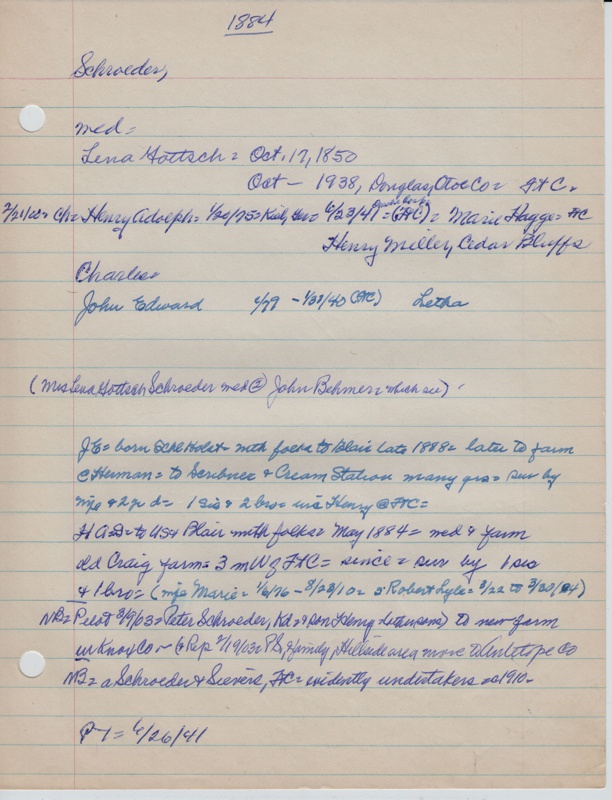 1884
Schroeder,
med =
Lena Gottsch = Oct. 17, 1850
Oct - 1938, Douglas, Otoe Co =
Ch = Henry Adolph = 1/20/75 = 6/23/41 = (FtC) = Marie Hagge = FtC
Henry Miller, Cedar Bluffs
Charles =
John Edward 4/79 - 1/30/40 (FtC) Letha
(Mrs Lena Gottsch Schroeder med ② John Behmer = which see)
JE = born Schl Holst - with folks to Blair late 1888 = later to farm
@ Herman = to Scribner & Cream Station many yrs = sur by
wife & 2 yr d = 1 sis & 2 bro = Henry @ FtC =
HAS = to US & Blair with folks = May 1884 = med & farm
old Craig farm = 3 mi W of FtC = since = sur by 1 sis
& 1 bro = (wife Marie = 1/6/76 - 3/23/10 = s Robert Lyle = 3/22 to 3/30/84)
NB = Pilot 3/9/03 = Peter Schroeder, Kd = & son Henry to new farm
in Knox Co - (& Rep 2/19/03 = PS, & family, Hillside area move to Antelope Co
NB = a Schroeder & Sievers, FtC = evidently undertakers ca 1910 -
PT = 6/26/41